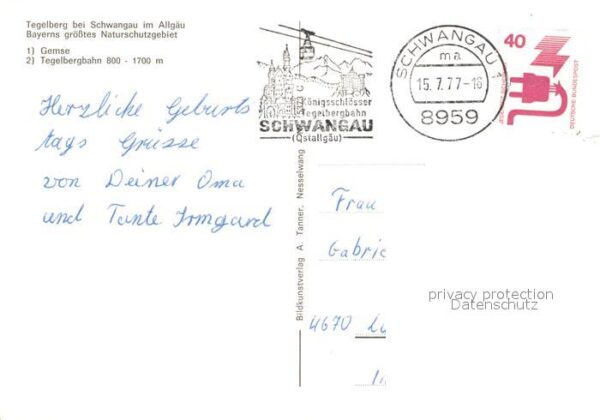 Tegelberg bei Schwangau im Allgäu
Bayerns größtes Naturschutzgebiet
1) Gemse
2) Tegelbergbahn 800 - 1700 m
Herzliche Geburts
tags Grüsse
von Deiner Oma
und Tante Irmgard
Königsschlösser
Tegelbergbahn
SCHWANGAU
(Ostallgäu)
SCHWANGAU 1
ma
15.7.77-16
8959
40
DEUTSCHE BUNDESPOST
Bildkunstverlag A. Tanner, Nesselwang
Frau
Gabrie
4670
privacy protection
Datenschutz